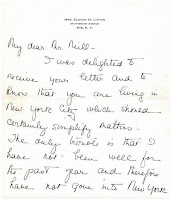 MRS. ELIGIUS M. LUPTON
AVENUE
RYE, N. Y.
My dear Mr. Neill -
I was delighted to
receive your letter and to
know that you are living in
New York City which should
certainly simplify matters.
The only trouble is that I
have not been well for
the past year and therefore
have not gone into New York